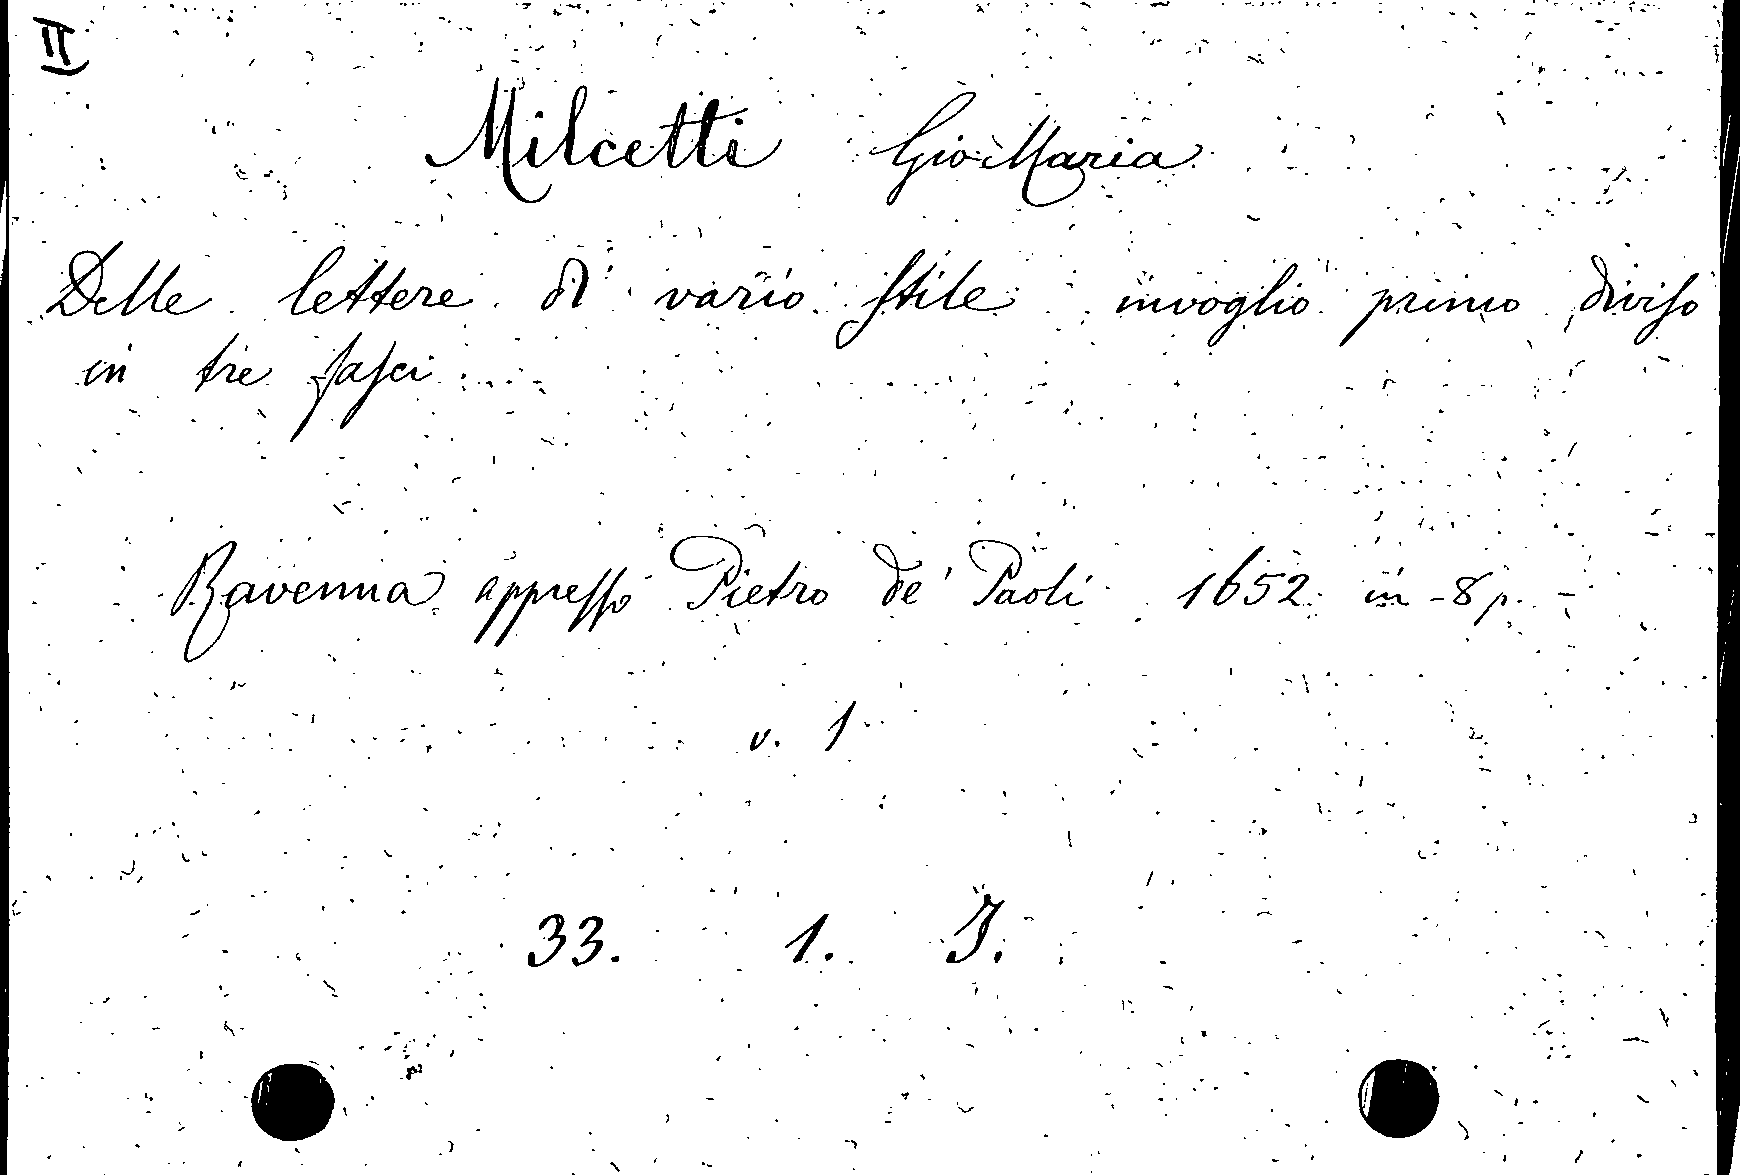 II
Milcetti Gio Maria
Delle lettere di vario stile invoglio primo diviso
in tre fasci
Ravenna appresso Pietro de' Paoli 1652 in-8 p.
v. 1
33. 1. I.